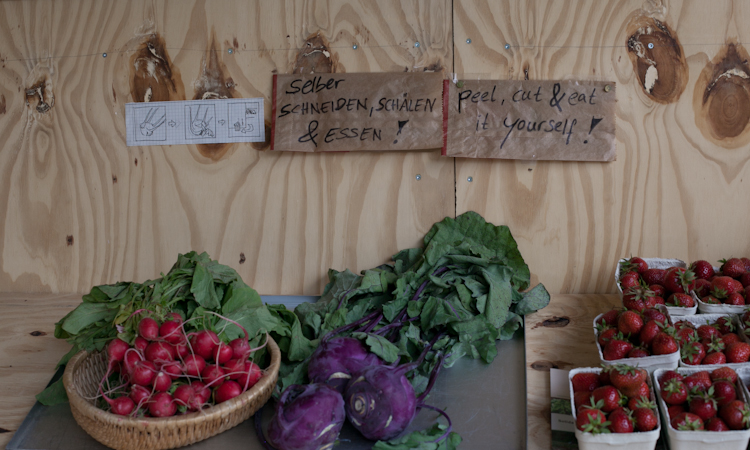 selber
SCHNEIDEN, SCHÄLEN
& ESSEN !
peel, cut & eat
it yourself !